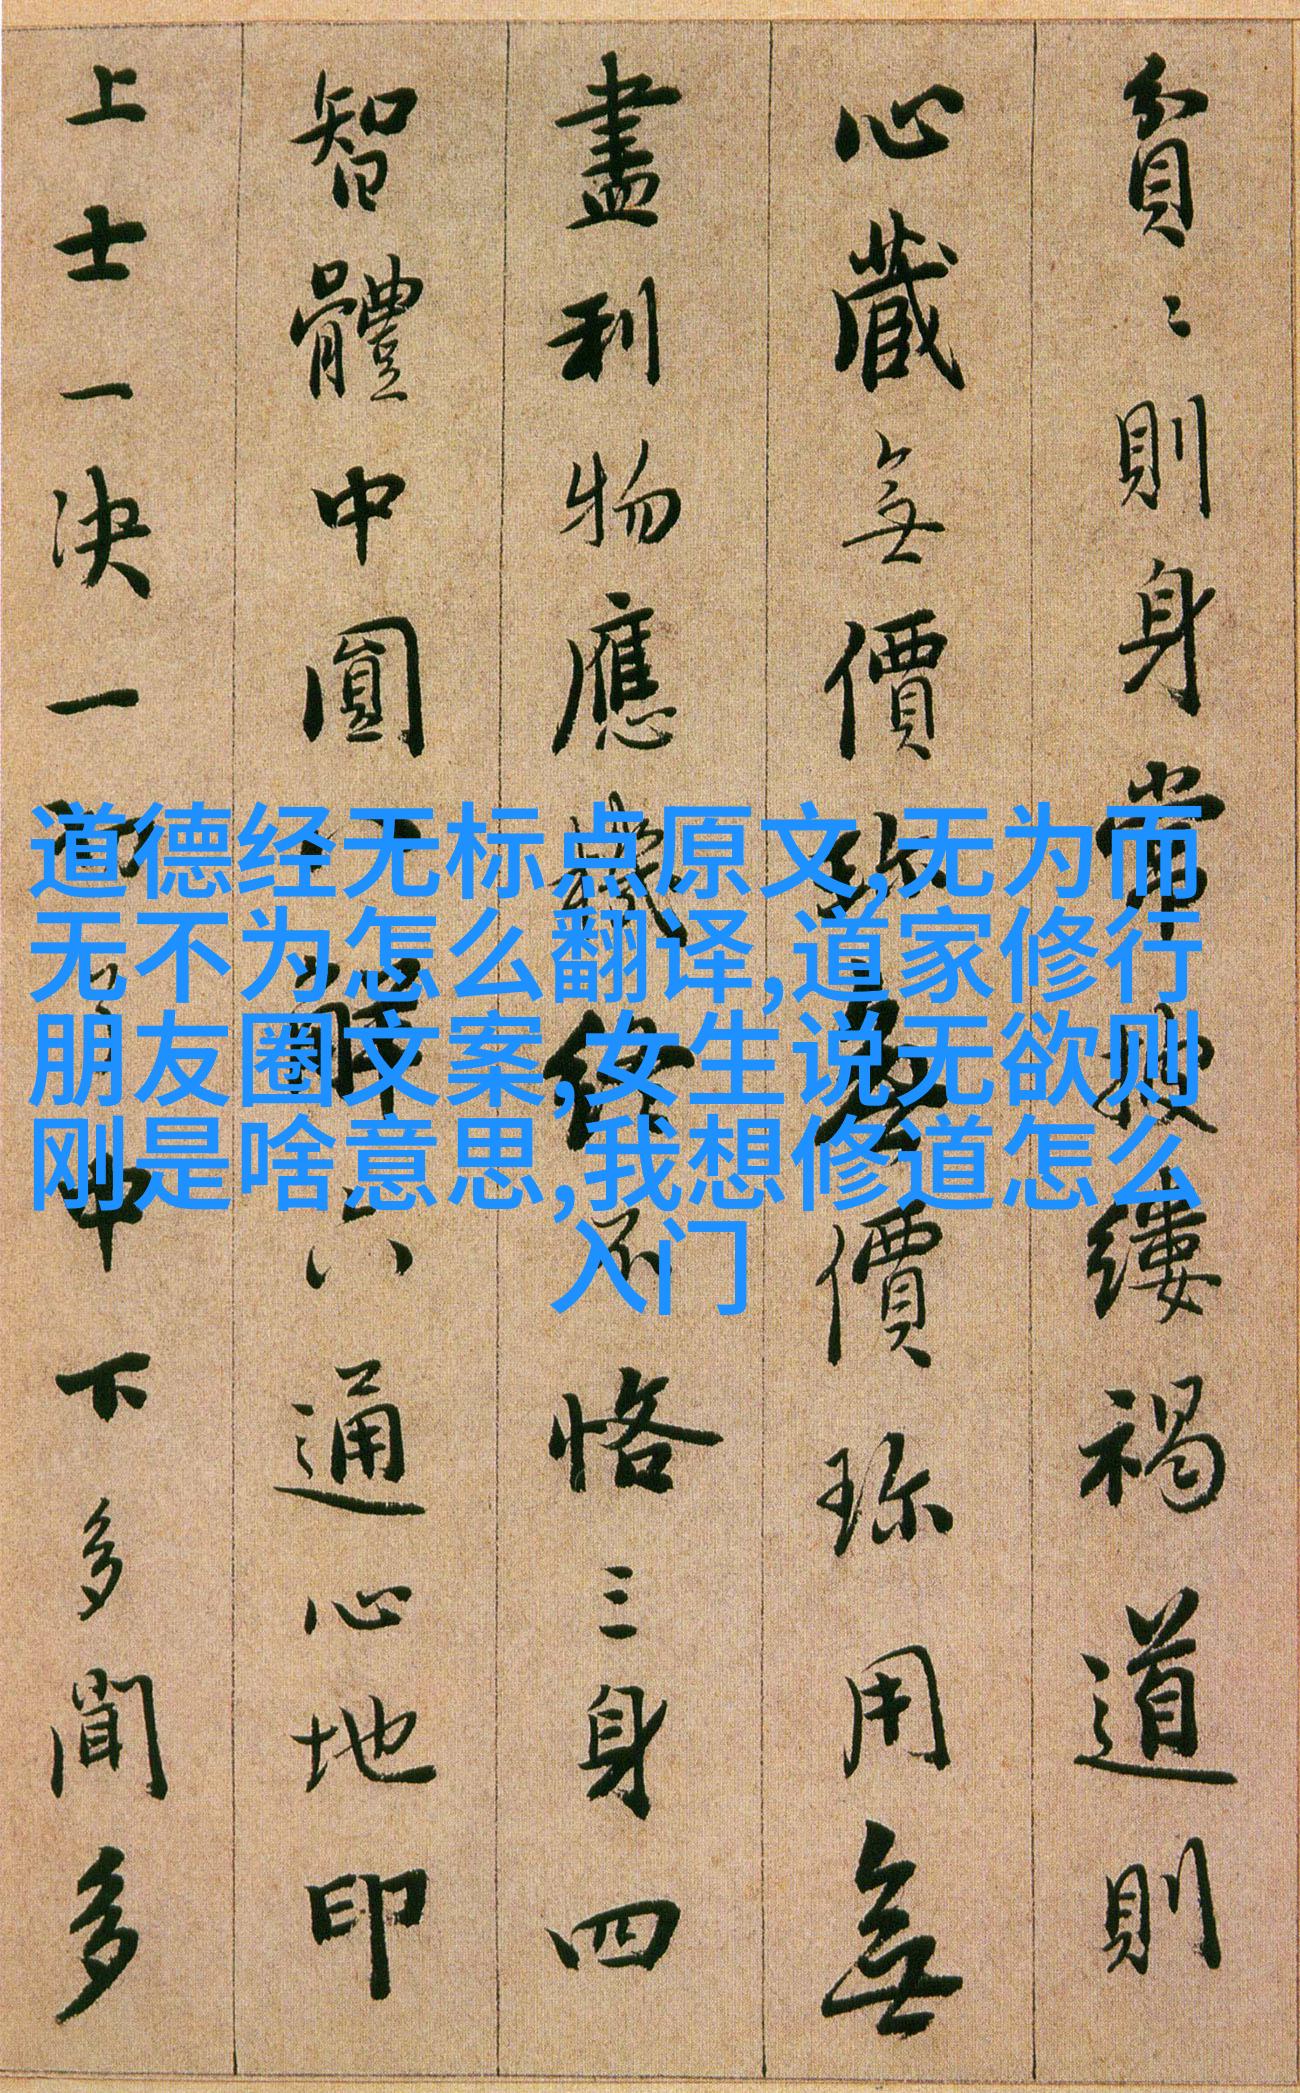 貧〻則身常披縷褐道則
心藏無價珎無價珎用無
盡利物應機終不恪三身四
智體中圓八解六通心地印
上士一决一切了中下多聞多
道德经无标点原文,无为而
无不为怎么翻译,道家修行
朋友圈文案,女生说无欲则
刚是啥意思,我想修道怎么
入门